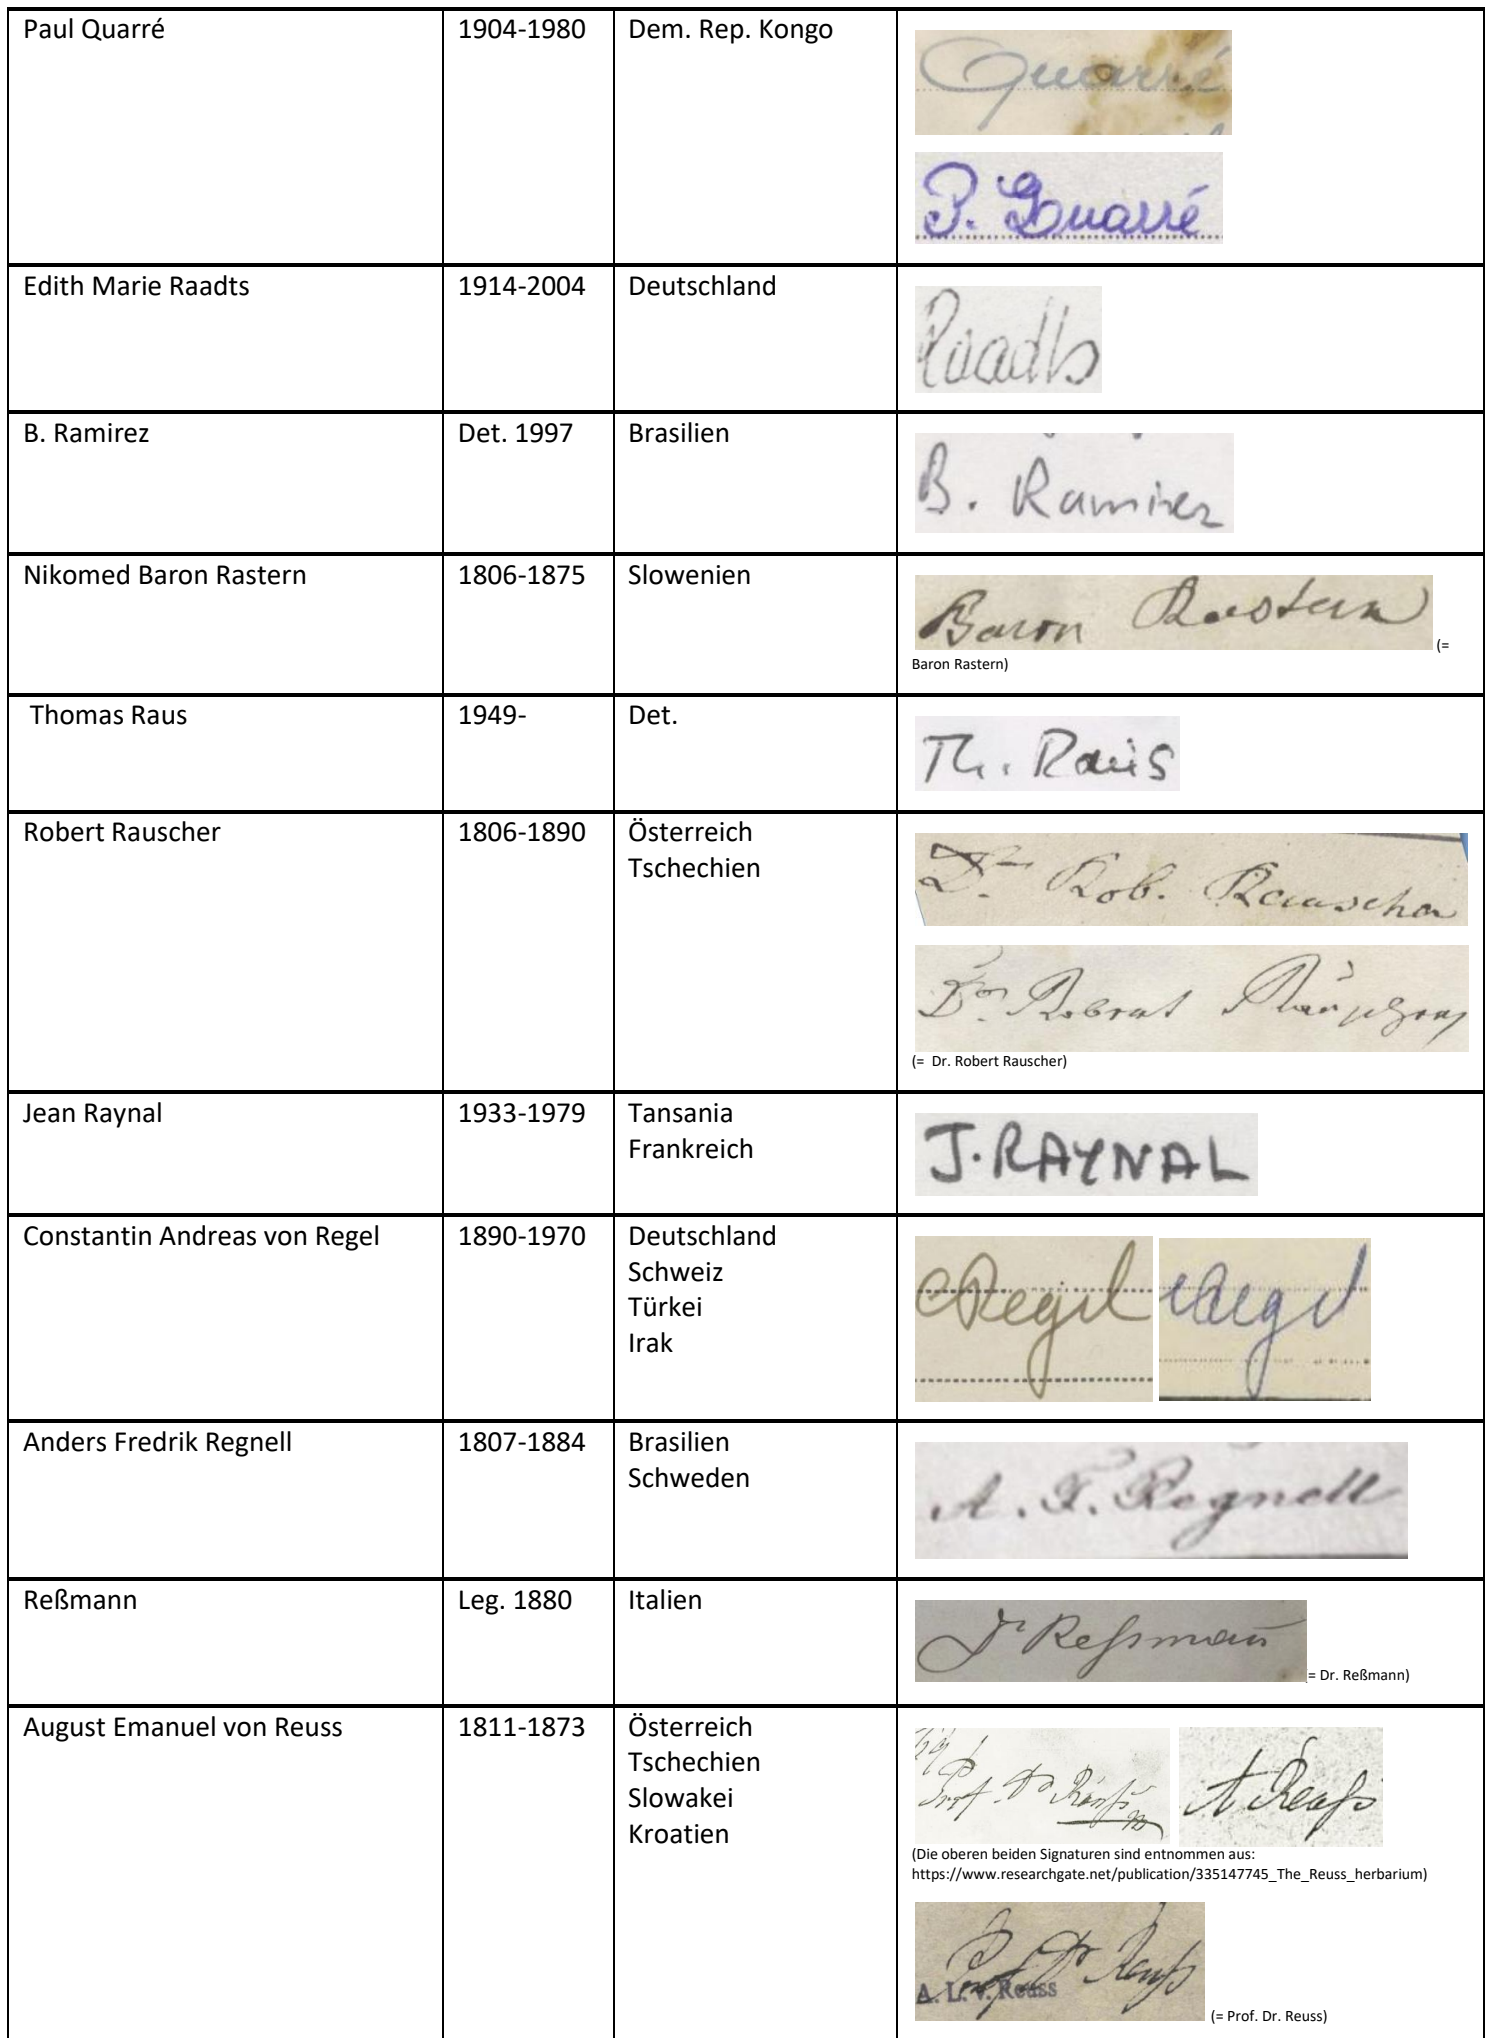 Paul Quarré 1904-1980 Dem. Rep. Kongo
Quarré
P. Quarré
Edith Marie Raadts 1914-2004 Deutschland
Raadts
B. Ramirez Det. 1997 Brasilien
B. Ramirez
Nikomed Baron Rastern 1806-1875 Slowenien
Baron Rastern (=
Baron Rastern)
Thomas Raus 1949- Det.
Th. Raus
Robert Rauscher 1806-1890 Österreich
Tschechien
Dr. Rob. Rauscher
Dr. Robert Rauscher
(= Dr. Robert Rauscher)
Jean Raynal 1933-1979 Tansania
Frankreich
J. RAYNAL
Constantin Andreas von Regel 1890-1970 Deutschland
Schweiz
Türkei
Irak
CRegel CRegel
Anders Fredrik Regnell 1807-1884 Brasilien
Schweden
A. F. Regnell
Reßmann Leg. 1880 Italien
Dr Reßmann (= Dr. Reßmann)
August Emanuel von Reuss 1811-1873 Österreich
Tschechien
Slowakei
Kroatien
Prof. Dr Reuß A Reuß
(Die oberen beiden Signaturen sind entnommen aus:
https://www.researchgate.net/publication/335147745_The_Reuss_herbarium)
Prof. Dr Reuß
A. L. v. Reuss (= Prof. Dr. Reuss)